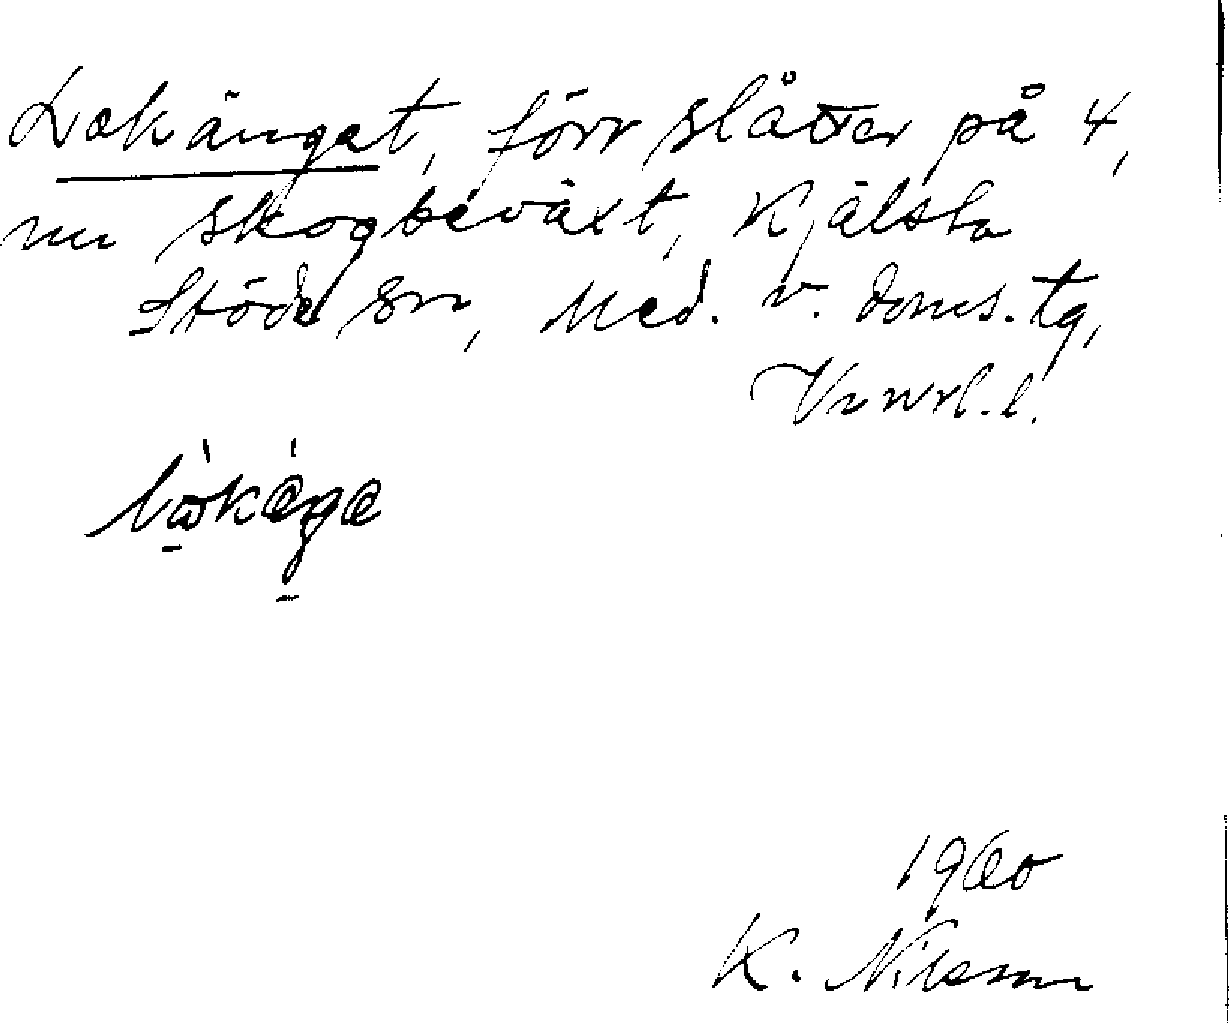 Lokänget, förr slåtter på 4,
nu skogbeväxt, Kjälsta
Stöde sn, Med. v. doms. tg,
Vnrl. l.
1960
K. Nilsson